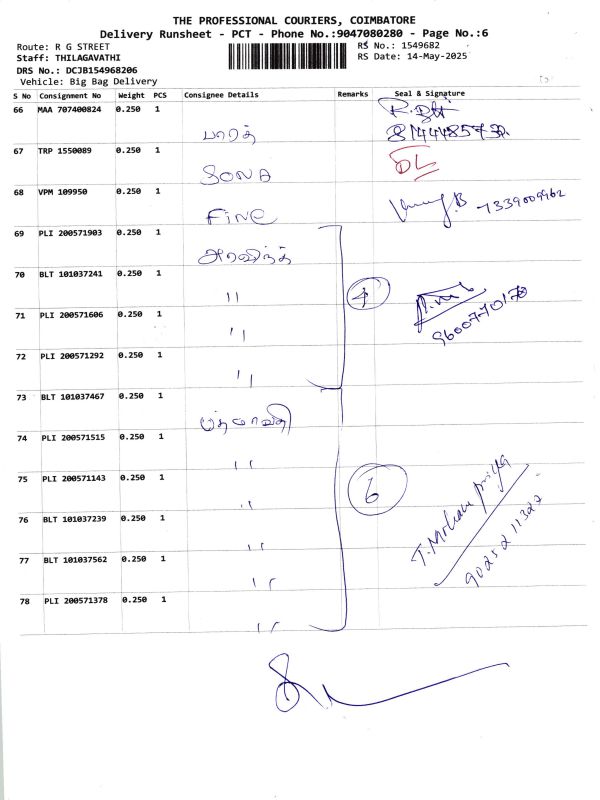 THE PROFESSIONAL COURIERS, COIMBATORE
Delivery Runsheet - PCT - Phone No.:9047080280 - Page No.:6
Route: R G STREET
RS No.: 1549682
Staff: THILAGAVATHI
RS Date: 14-May-2025
DRS No.: DCJB154968206
Vehicle: Big Bag Delivery
S No Consignment No Weight PCS Consignee Details Remarks Seal & Signature
66 MAA 707400824 0.250 1
பாரத்
67 TRP 1550089 0.250 1
SONA
68 VPM 109950 0.250 1
FINE
69 PLI 200571903 0.250 1
அரவிந்த்
70 BLT 101037241 0.250 1
" 4
71 PLI 200571606 0.250 1
" 9600770170
72 PLI 200571292 0.250 1
"
73 BLT 101037467 0.250 1
பத்மாவதி
74 PLI 200571515 0.250 1
"
75 PLI 200571143 0.250 1
" 6
76 BLT 101037239 0.250 1
"
77 BLT 101037562 0.250 1
"
78 PLI 200571378 0.250 1
"